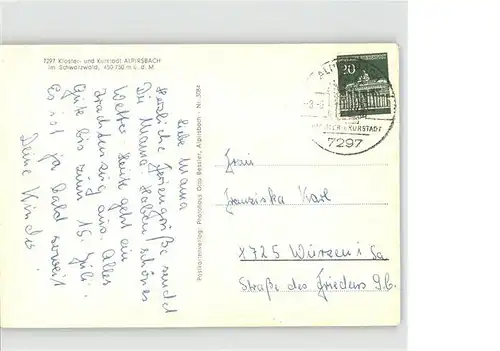 7297 Kloster- und Kurstadt ALPIRSBACH
im Schwarzwald, 450-750 m ü. d. M
Liebe Mama
Herzliche Feriengrüße sendet
Dir Mama. Haben schönes
Wetter. Heute geht ein
Trachtenzug aus. Alles
Gute bis zum 15. Juli.
Es ist ja bald soweit
Deine Kinder
Postkartenverlag: Photohaus Bessler, Alpirsbach - Nr. 5084
20
KURSTADT
7297
Frau
Franziska Karl
X725 Wurzen i Sa
Straße des Friedens 9.b.